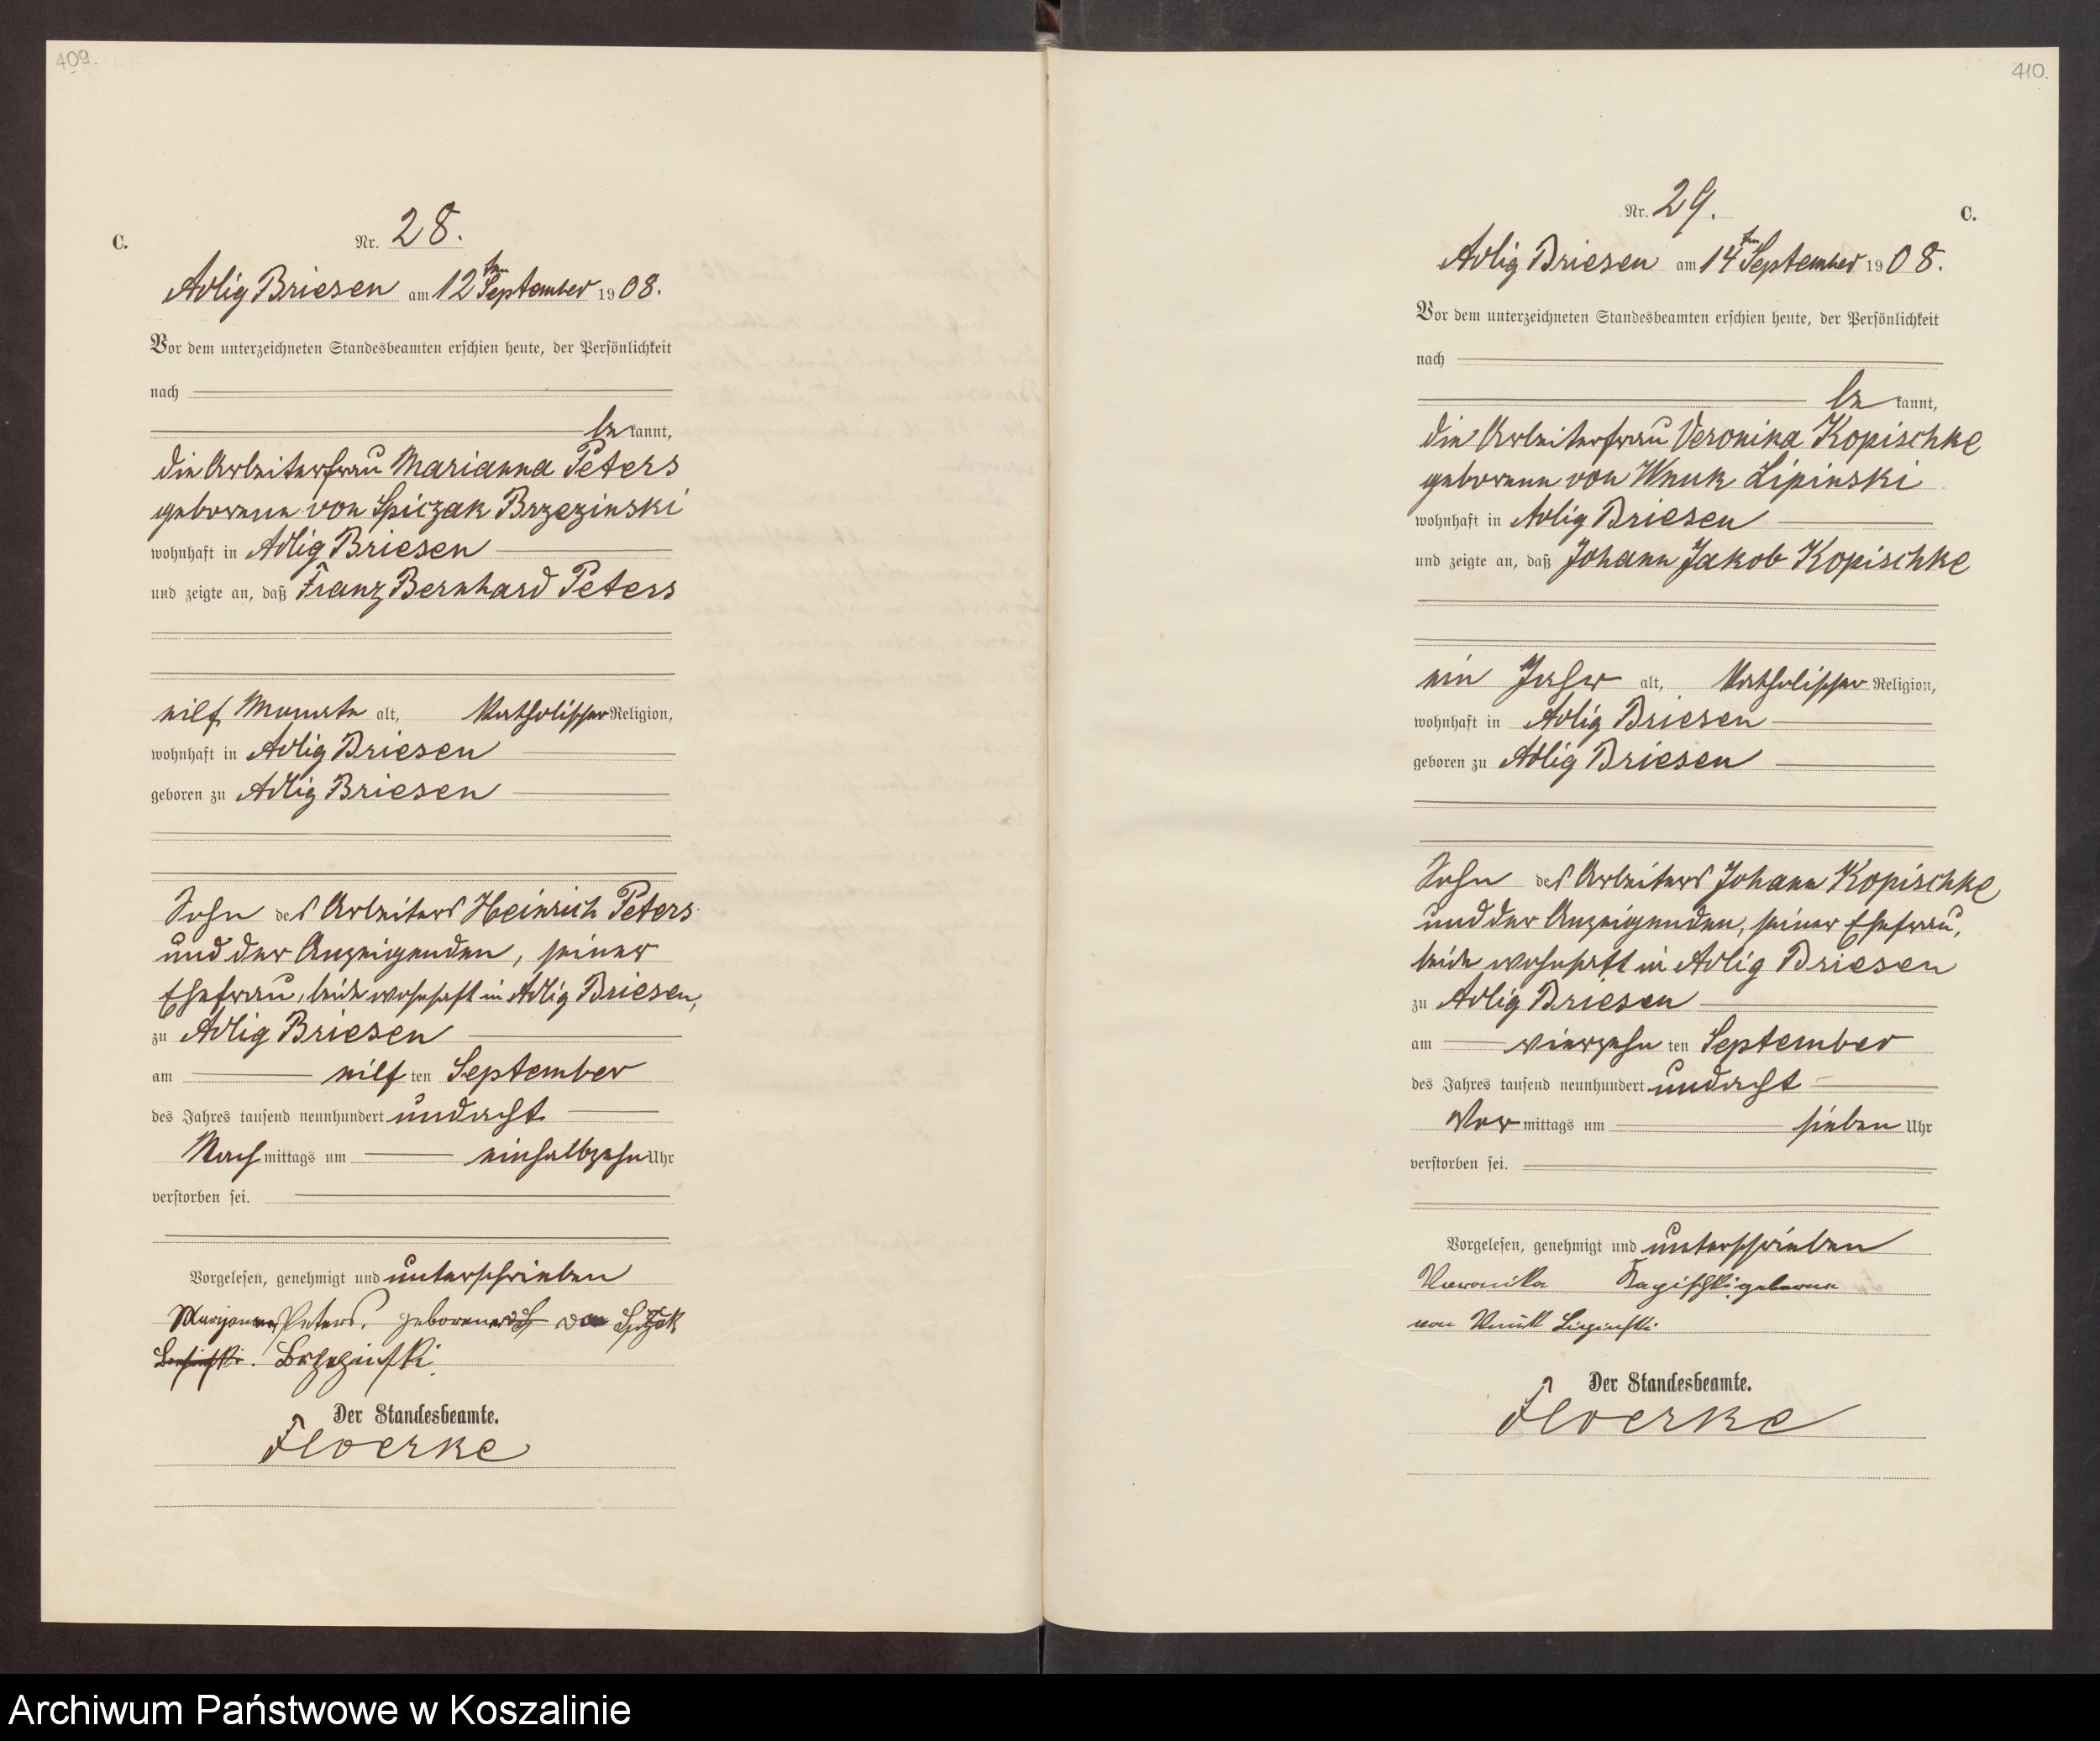 409.
C.
Nr. 28.
Adlig Briesen am 12ten September 1908.
Vor dem unterzeichneten Standesbeamten erschien heute, der Persönlichkeit
nach
be kannt,
die Arbeiterfrau Marianna Peters
geborene von Spiczak Brzezinski
wohnhaft in Adlig Briesen
und zeigte an, daß Franz Bernhard Peters
eilf Monate alt, katholischer Religion,
wohnhaft in Adlig Briesen
geboren zu Adlig Briesen
Sohn des Arbeiters Heinrich Peters
und der Anzeigenden, seiner
Ehefrau, beide wohnhaft in Adlig Briesen,
zu Adlig Briesen
am eilf ten September
des Jahres tausend neunhundert undacht
Nach mittags um einhalbzehn Uhr
verstorben sei.
Vorgelesen, genehmigt und unterschrieben
Marjanna Peters, geborene von Spizak
Brzezinski.
Der Standesbeamte.
Floerke
410.
C.
Nr. 29.
Adlig Briesen am 14ten September 1908.
Vor dem unterzeichneten Standesbeamten erschien heute, der Persönlichkeit
nach
be kannt,
die Arbeiterfrau Veronika Kopischke
geborene von Wnuk Lipinski
wohnhaft in Adlig Briesen
und zeigte an, daß Johann Jakob Kopischke
ein Jahr alt, katholischer Religion,
wohnhaft in Adlig Briesen
geboren zu Adlig Briesen
Sohn des Arbeiters Johann Kopischke
und der Anzeigenden, seiner Ehefrau,
beide wohnhaft in Adlig Briesen
zu Adlig Briesen
am vierzehn ten September
des Jahres tausend neunhundert undacht
Vor mittags um sieben Uhr
verstorben sei.
Vorgelesen, genehmigt und unterschrieben
Weronika geborene
von Wnuk Lipinski
Der Standesbeamte.
Floerke
Archiwum Państwowe w Koszalinie